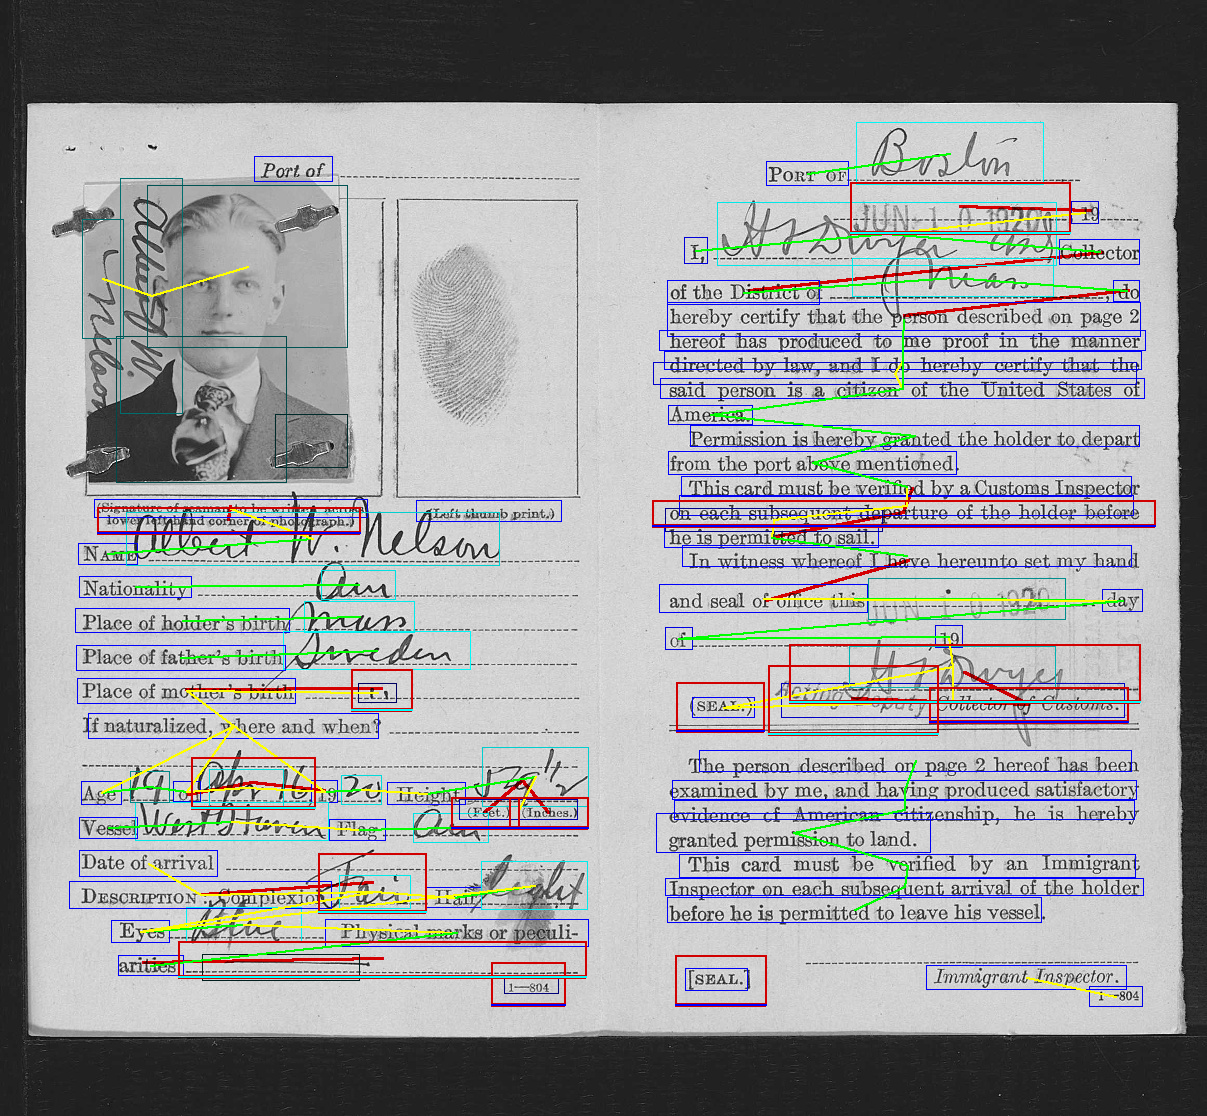 Port of
Albert W.
Nelson
(Signature of seaman to be written across
lower left hand corner of photograph.)
(Left thumb print.)
NAME Albert W. Nelson
Nationality Am
Place of holder's birth Mass
Place of father's birth Sweden
Place of mother's birth "
If naturalized, where and when?
Age 19 on Apr 16, 1920. Height 5 9 1/2
(Feet.) (Inches.)
Vessel West Haven Flag Am
Date of arrival
DESCRIPTION: Complexion Fair Hair Light
Eyes Blue Physical marks or peculi-
arities
1—804
PORT OF Boston
JUN 10 1920 , 19
I, H J Dwyer Collector
of the District of Mass , do
hereby certify that the person described on page 2
hereof has produced to me proof in the manner
directed by law, and I do hereby certify that the
said person is a citizen of the United States of
America.
Permission is hereby granted the holder to depart
from the port above mentioned.
This card must be verified by a Customs Inspector
on each subsequent departure of the holder before
he is permitted to sail.
In witness whereof I have hereunto set my hand
and seal of office this JUN 10 1920 day
of , 19
H J Dwyer
(SEAL.) Acting Deputy Collector of Customs.
The person described on page 2 hereof has been
examined by me, and having produced satisfactory
evidence of American citizenship, he is hereby
granted permission to land.
This card must be verified by an Immigrant
Inspector on each subsequent arrival of the holder
before he is permitted to leave his vessel.
[SEAL.]
Immigrant Inspector.
1—804